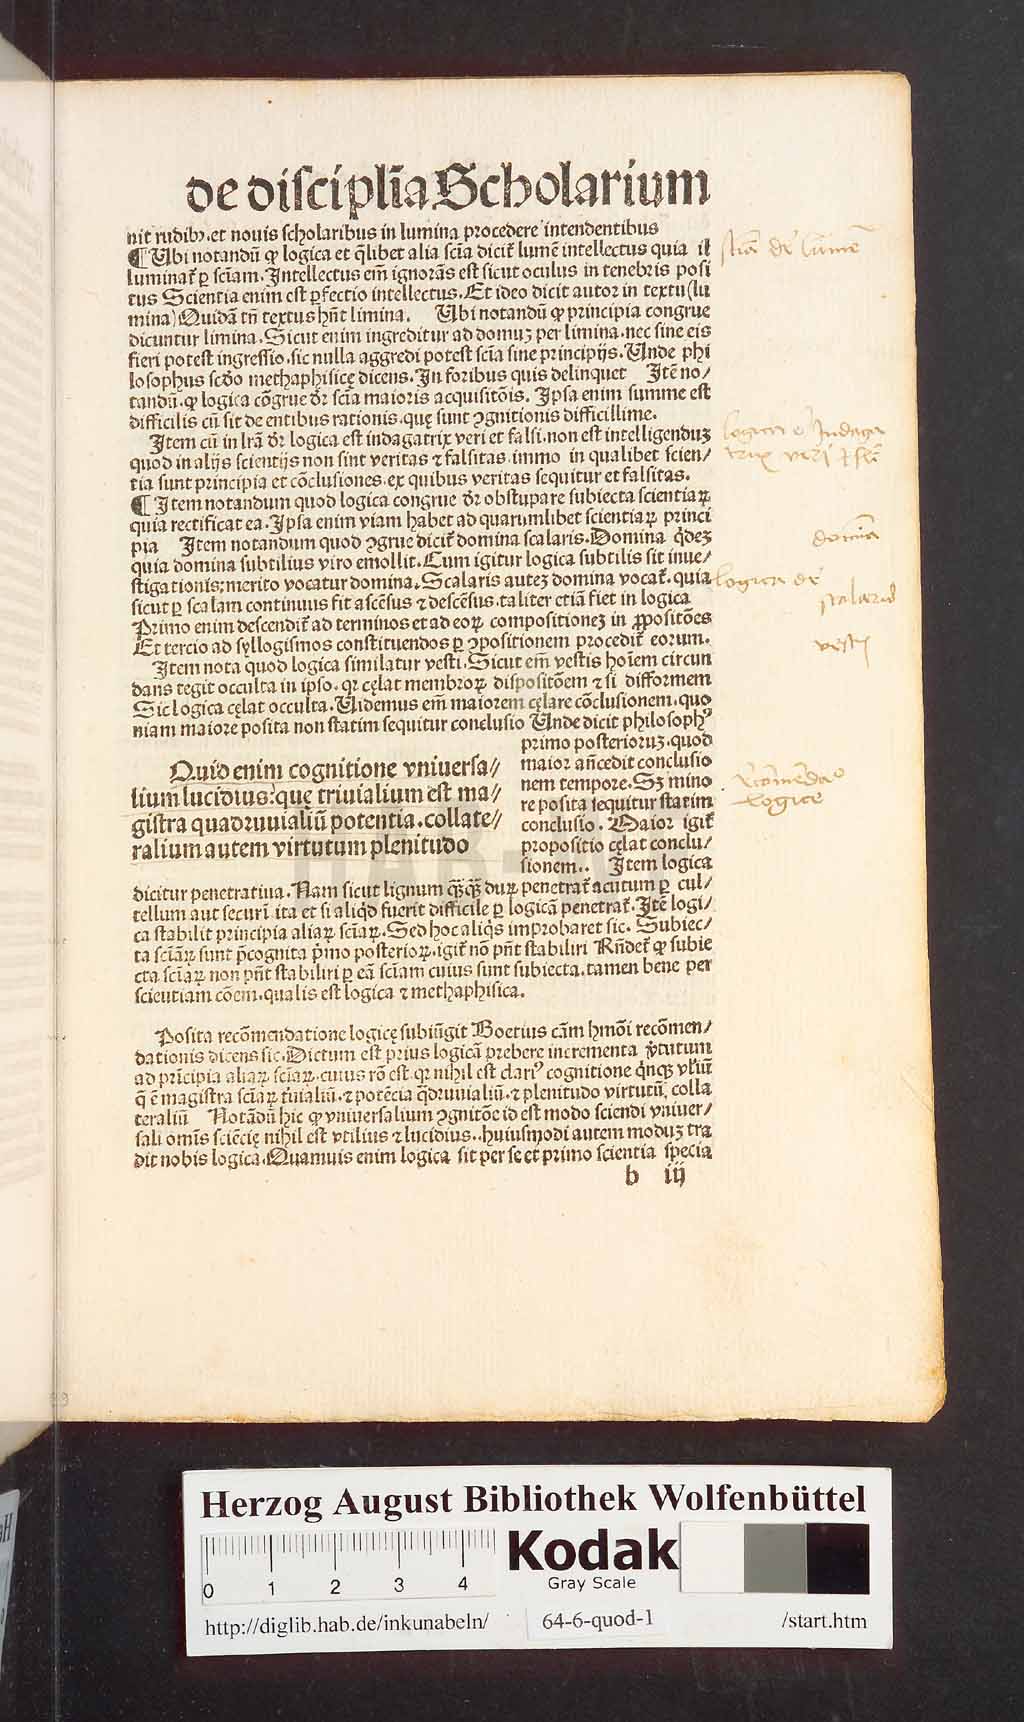 de disciplīa Scholarium
nit rudibꝫ. et nouis scholaribus in lumina procedere intendentibus
¶ Ubi notandū ꝙ logica et q̄libet alia scīa dicit̃ lumē intellectus quia il
luminat̃ ꝑ scīam. Intellectus em̄ ignorās est sicut oculus in tenebris posi
tus Scientia enim est ꝑfectio intellectus. Et ideo dicit autor in textu (lu
mina) Quidā tn̄ textus hn̄t limina. Ubi notandū ꝙ principia congrue
dicuntur limina. Sicut enim ingreditur ad domuꝫ per limina. nec sine eis
fieri potest ingressio. sic nulla aggredi potest scīa sine principijs. Unde phi
losophus scd̄o methaphisicę dicens. In foribus quis delinquet Itē no/
tandū. ꝙ logica cōgrue dr̄ scīa maioris acquisitōis. Ipsa enim summe est
difficilis cū sit de entibus rationis. quę sunt ꝯgnitionis difficillime.
Item cū in lr̄a dr̄ logica est indagatrix veri et falsi. non est intelligenduꝫ
quod in alijs scientijs non sint veritas ⁊ falsitas. immo in qualibet scien/
tia sunt principia et cōclusiones. ex quibus veritas sequitur et falsitas.
¶ Item notandum quod logica congrue dr̄ obstupare subiecta scientiaꝝ
quia rectificat ea. Ipsa enim viam habet ad quarumlibet scientiaꝝ princi
pia Item notandum quod ꝯgrue dicit̃ domina scalaris. Domina q̇deꝫ
quia domina subtilius viro emollit. Cum igitur logica subtilis sit inue/
stigationis; merito vocatur domina. Scalaris auteꝫ domina vocat̃. quia
sicut ꝑ scalam continuus fit ascēsus ⁊ descēsus. taliter etiā fiet in logica
Primo enim descendit̃ ad terminos et ad eoꝝ compositioneꝫ in ꝓpositōes
Et tercio ad syllogismos constituendos ꝑ ꝯpositionem procedit̃ eorum.
Item nota quod logica similatur vesti. Sicut em̄ vestis hoīem circun
dans tegit occulta in ipso. qꝛ cęlat membroꝝ dispositōem ⁊ si difformem
Sic logica cęlat occulta. Uidemus em̄ maiorem cęlare cōclusionem. quo
niam maiore posita non statim sequitur conclusio Unde dicit philosophꝰ
primo posterioruꝫ. quod
maior an̄cedit conclusio
nem tempore. Sꝫ mino
re posita sequitur statim
conclusio. Maior igit̃
propositio cęlat conclu/
sionem.. Item logica
Quid enim cognitione vniuersa//
lium lucidius: quę triuialium est ma/
gistra quadruuialiū potentia. collate//
ralium autem virtutum plenitudo
dicitur penetratiua. Nam sicut lignum qͣꝫqͣꝫ duꝝ penetrat̃ acutum ꝑ cul/
tellum aut securī ita et si aliq̇d fuerit difficile ꝑ logicā penetrat̃. Itē logi/
ca stabilit principia aliaꝝ scīaꝝ. Sed hoc aliq̇s improbaret sic. Subiec/
ta scīaꝝ sunt p̄cognita p̄mo posterioꝝ. igit̃ nō pn̄t stabiliri Rn̄det̃ ꝙ subie
cta scīaꝝ non pn̄t stabiliri ꝑ eā scīam cuius sunt subiecta. tamen bene per
scientiam cōem. qualis est logica ⁊ methaphisica.
Posita recōmendatione logicę subiūgit Boetius cām hmōi recōmen/
dationis dicens sic. Dictum est prius logicā prebere incrementa v̓tutum
ad prīcipia aliaꝝ scīaꝝ. cuius rō est. qꝛ nihil est clariꝰ cognitione q̇nqꝫ vl̓iū
q̄ ē magistra scīaꝝ t̓uialiū. ⁊ potēcia q̄druuialiū ⁊ plenitudo virtutū, colla
teraliū Notādū hic ꝙ vniuersalium ꝯgnitōe id est modo sciendi vniuer/
sali omīs sciēcię nihil est vtilius ⁊ lucidius.. huiusmodi autem moduꝫ tra
dit nobis logica. Quamuis enim logica sit per se et primo scientia specia
b iij
logica ē Indaga
trix veri ⁊ fal
domina
logica dr̄
scalaris
vestis
Recōmendao
logice
Herzog August Bibliothek Wolfenbüttel
0 1 2 3 4
Kodak
Gray Scale
http://diglib.hab.de/inkunabeln/ 64-6-quod-1 /start.htm